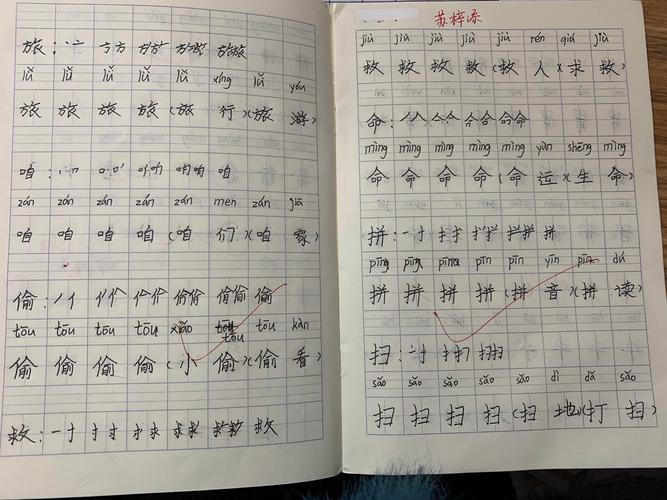 旅:
lǚ lǚ lǚ lǚ lǚ xíng lǚ yóu
旅 旅 旅 旅 (旅 行)(旅 游)
咱: 咱
zán zán zán zán zán men zán jiā
咱 咱 咱 咱 (咱 们)(咱 家)
偷: 偷
tōu tōu tōu tōu xiǎo tōu tōu kàn
偷 偷 偷 偷 (小 偷)(偷 看)
救: 一 十 救
苏梓添
jiù jiù jiù jiù jiù rén qiú jiù
救 救 救 救 (救 人)(求 救)
命:
mìng mìng mìng mìng mìng yùn shēng mìng
命 命 命 命 (命 运)(生 命)
拼: 一 十 扌 拼
pīng pīng pīng pīn pīn yīn pīn dú
拼 拼 拼 拼 (拼 音)(拼 读)
扫: 一 十 扌
sǎo sǎo sǎo sǎo sǎo dì dǎ sǎo
扫 扫 扫 扫 (扫 地)(打 扫)